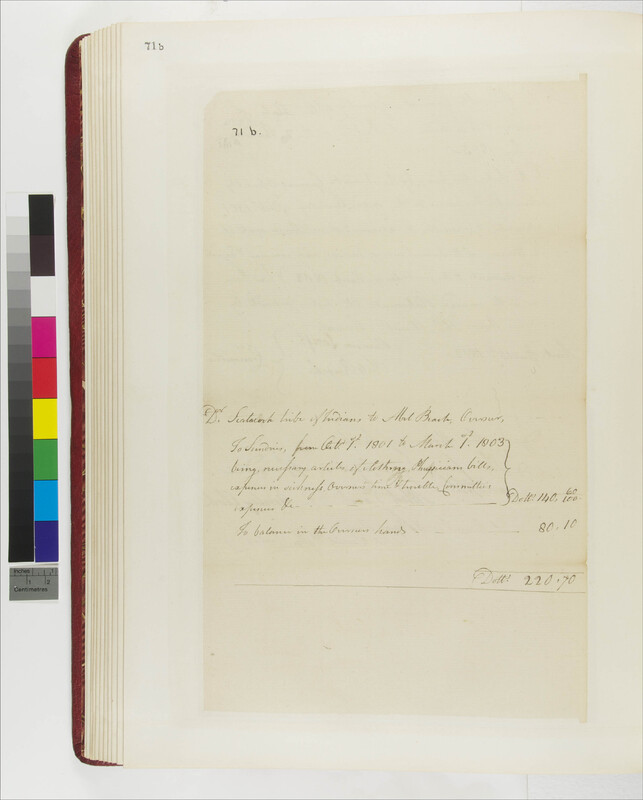 71b
71 b.
Dr. Scatacook tribe of Indians to Abel Beach, Overseer,
To Sundries, from Octbr 7th. 1801 to March 7th. 1803
being necessary articles of clothing, Physician bills,
expences in sickness Overseers time & trouble, Committees
expences &c. Dolls 140, 60/100
To balance in the Overseers hands 80.10
Dolls 220.70
inches 1 2
centimetres